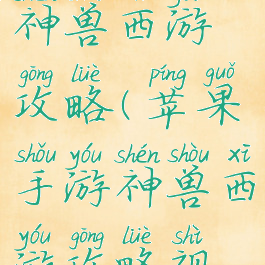 神兽西游
gōng lüè píng guǒ
攻略(苹果
shǒu yóu shén shòu xī
手游神兽西
yóu gōng lüè shì
游攻略视